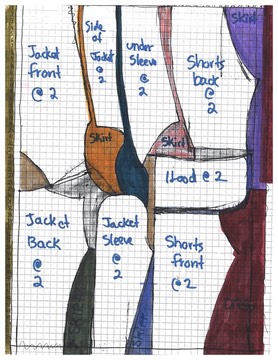 Skirt
Side
of
Jacket
@
2
Jacket
front
@ 2
under
Sleeve
@
2
Shorts
back
@
2
Skirt
Skirt
Hood @ 2
Jacket
Back
@
2
Jacket
Sleeve
@
2
Shorts
front
@ 2